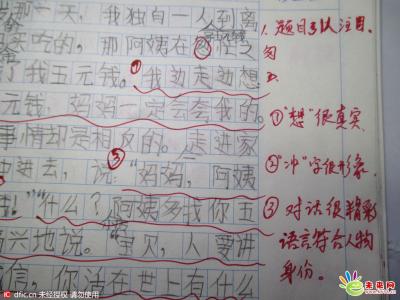 那一天,我独自一人到离
买吃的,那阿姨在
了我五元钱。我边走边想
元钱,妈妈一定会夸我的。
事情却是相反的。走进家
冲进去,说:"妈妈,阿姨
"什么?阿姨多找你五
高兴地说。"宝贝,人要讲
信,你
世上有什么
题目引人注目。
①"想"很真实
②"冲"字很形象
③对话很精彩
语言符合人物
身份。
dfic.cn 未经授权 请勿使用
未来网